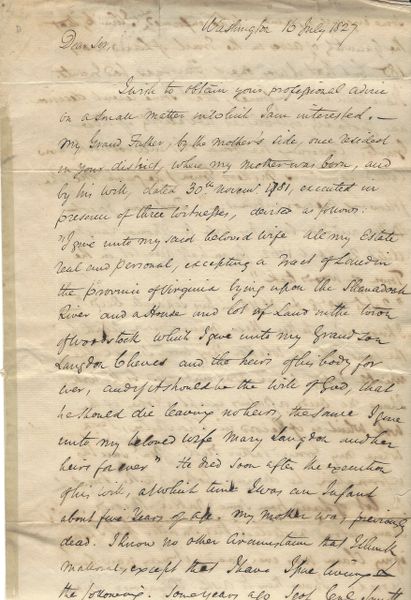 Washington 13 July 1827
Dear Sir,
I wish to obtain your professional advice
on a small matter in which I am interested. —
My Grand Father, by the mother's side, once resided
in your district, where my mother was born, and
by his will, dated 30th Novemr. 1781, executed in
presence of three witnesses, devised as follows:
"I give unto my said beloved wife all my Estate
real and personal, excepting a Tract of Land in
the province of Virginia lying upon the Shanadoah
River and a House and lot of Land in the town
of Woodstock which I give unto my Grand son
Langdon Cheves and the heirs of his body for
ever, and if it should be the will of God, that
he should die leaving no heirs, the same I give
unto my beloved wife Mary Langdon and her
heirs for ever" He died soon after the execution
of his will, at which time I was an Infant
about five Years of age. My mother was previously
dead. I know no other circumstance that I think
material, except that I have Issue living &
the following. Some years ago I